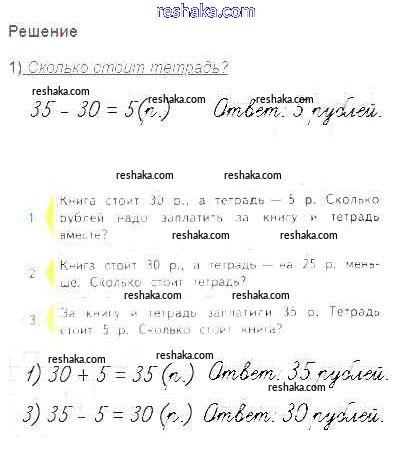 reshaka.com
Решение
1) Сколько стоит тетрадь?
reshaka.com reshaka.com
35 - 30 = 5(р.) Ответ: 5 рублей.
reshaka.com reshaka.com
reshaka.com reshaka.com
1 Книга стоит 30 р., а тетрадь — 5 р. Сколько
рублей надо заплатить за книгу и тетрадь
вместе? reshaka.com reshaka.com
2 Книга стоит 30 р., а тетрадь — на 25 р. мень-
ше. Сколько стоит тетрадь?
reshaka.com reshaka.com
3 За книгу и тетрадь заплатили 35 р. Тетрадь
стоит 5 р. Сколько стоит книга?
reshaka.com reshaka.com
1) 30 + 5 = 35 (р.) Ответ: 35 рублей.
reshaka.com
3) 35 - 5 = 30 (р.) Ответ: 30 рублей.
reshaka.com reshaka.com